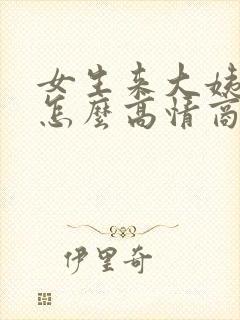 女生来大姨
怎麼高情商
伊里奇